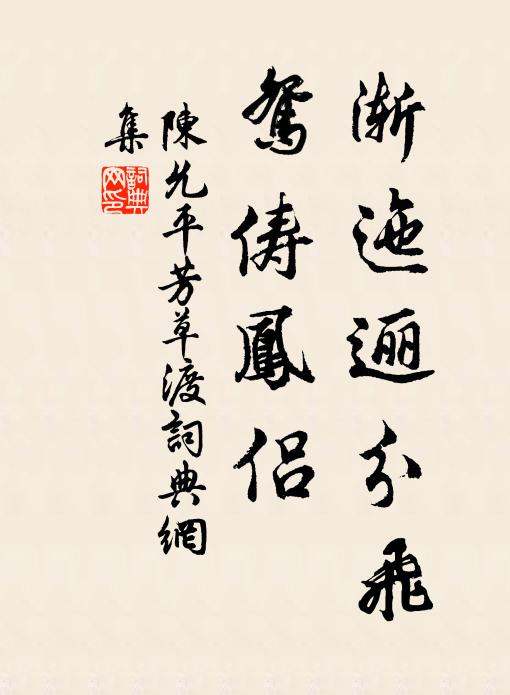 漸迤逦分飛
鴛儔鳳侶
陳允平芳草渡詞典網
集
詞典
网印